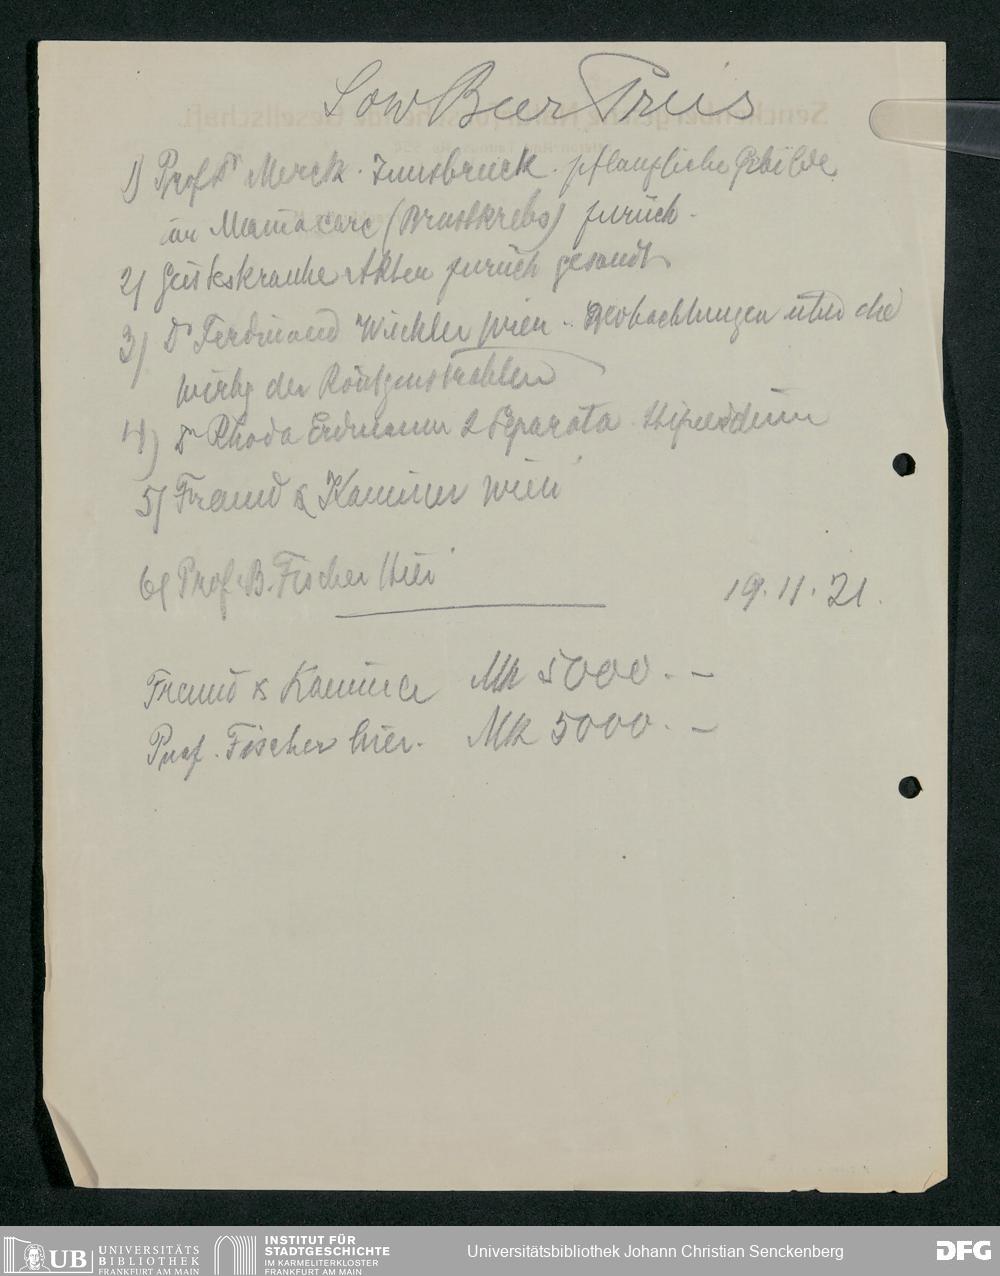 Low Beer Preis
1) Prof Dr Merck. Innsbruck. pflanzliche Gebilde
im Mamacarc (Brustkrebs) zurück.
2) Geisteskranke Akten zurück gesandt
3) Dr Ferdinand Wichler Wien. Beobachtungen über die
Wirkg der Röntgenstrahlen
4) Dr Rhoda Erdmann 2 Separata Stipendium
5) Freund & Kaminer Wien
6) Prof. B. Fischer Hier
19.11.21.
Freund & Kaminer Mk 5000.-
Prof. Fischer hier. Mk 5000.-
UB UNIVERSITÄTS
BIBLIOTHEK
FRANKFURT AM MAIN
INSTITUT FÜR
STADTGESCHICHTE
IM KARMELITERKLOSTER
FRANKFURT AM MAIN
Universitätsbibliothek Johann Christian Senckenberg
DFG